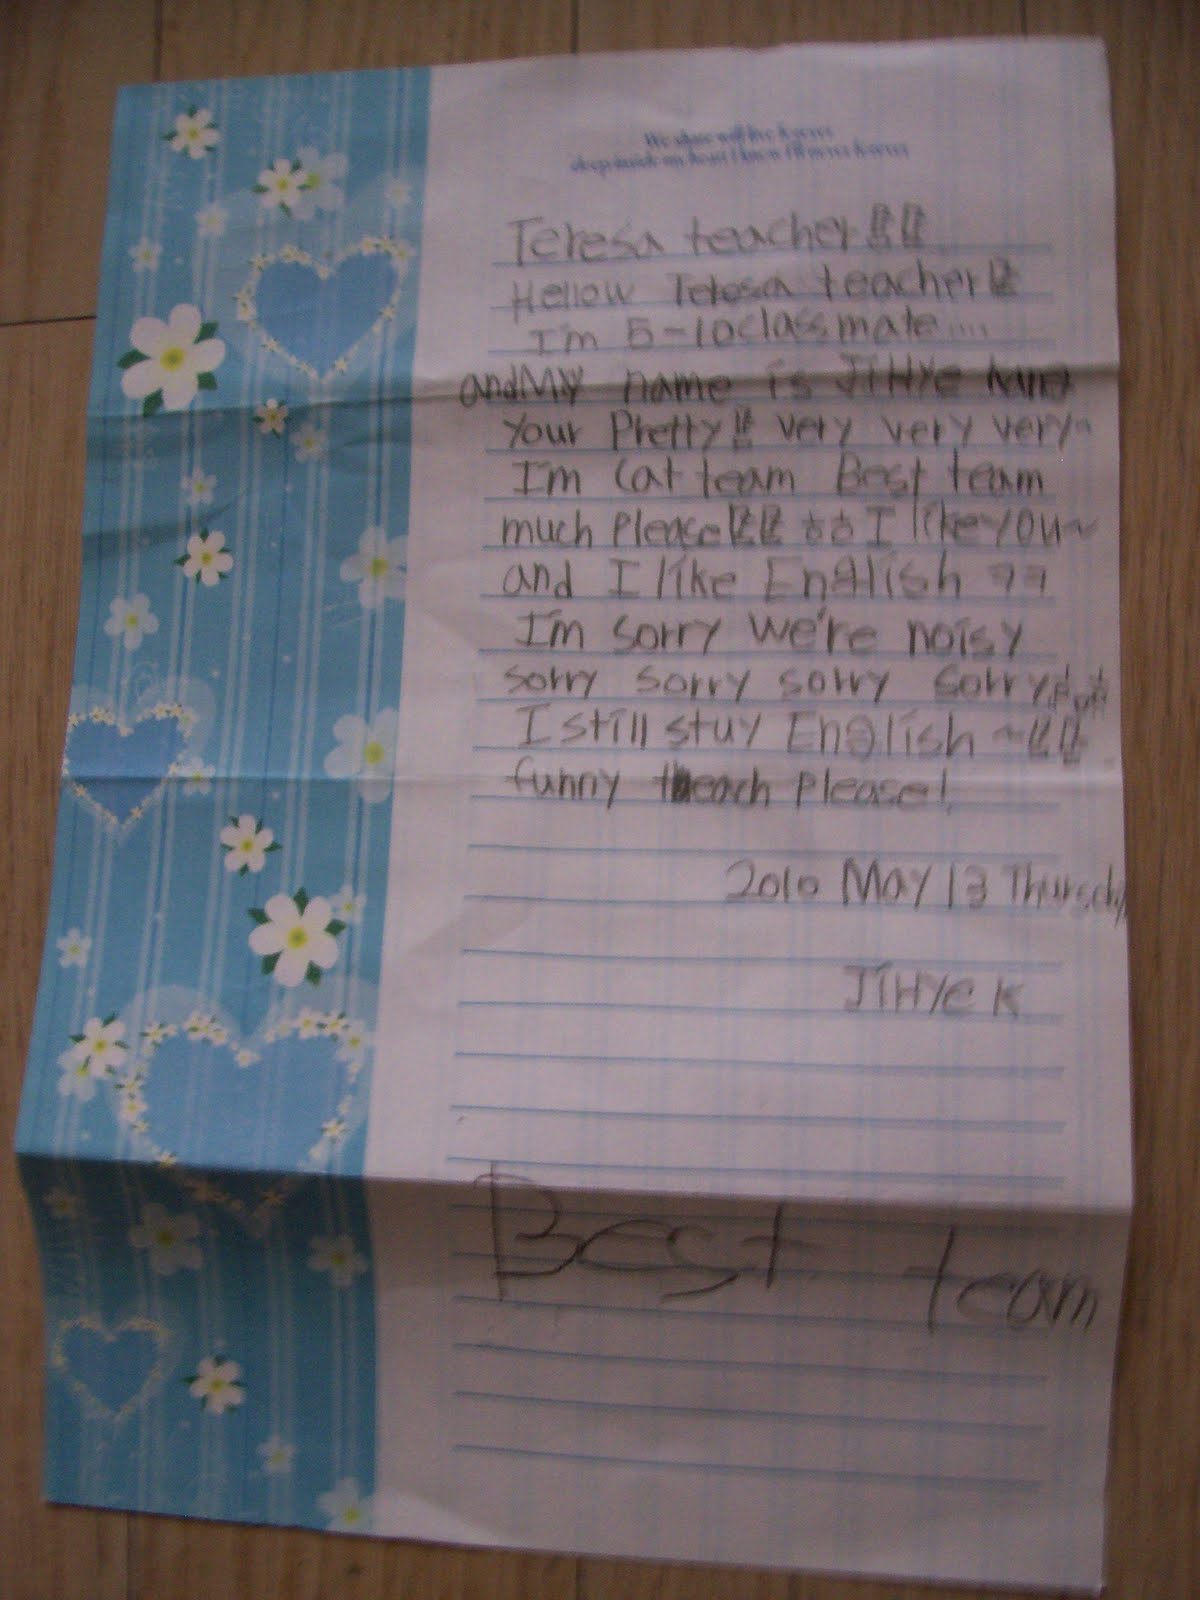 Teresa teacher!!
Hellow Teresa teacher!
I'm 5-10 classmate....
and My name is JiHYe
Your Pretty!! very very very~
I'm Cat team Best team
much Please!! ㅎㅎ I like you~
and I like English ㅋㅋ
I'm sorry we're noisy
sorry sorry sorry sorry
I still stuy English ~!!
funny teach please!
2010 May 13 Thursday
JiHYe K
Best team